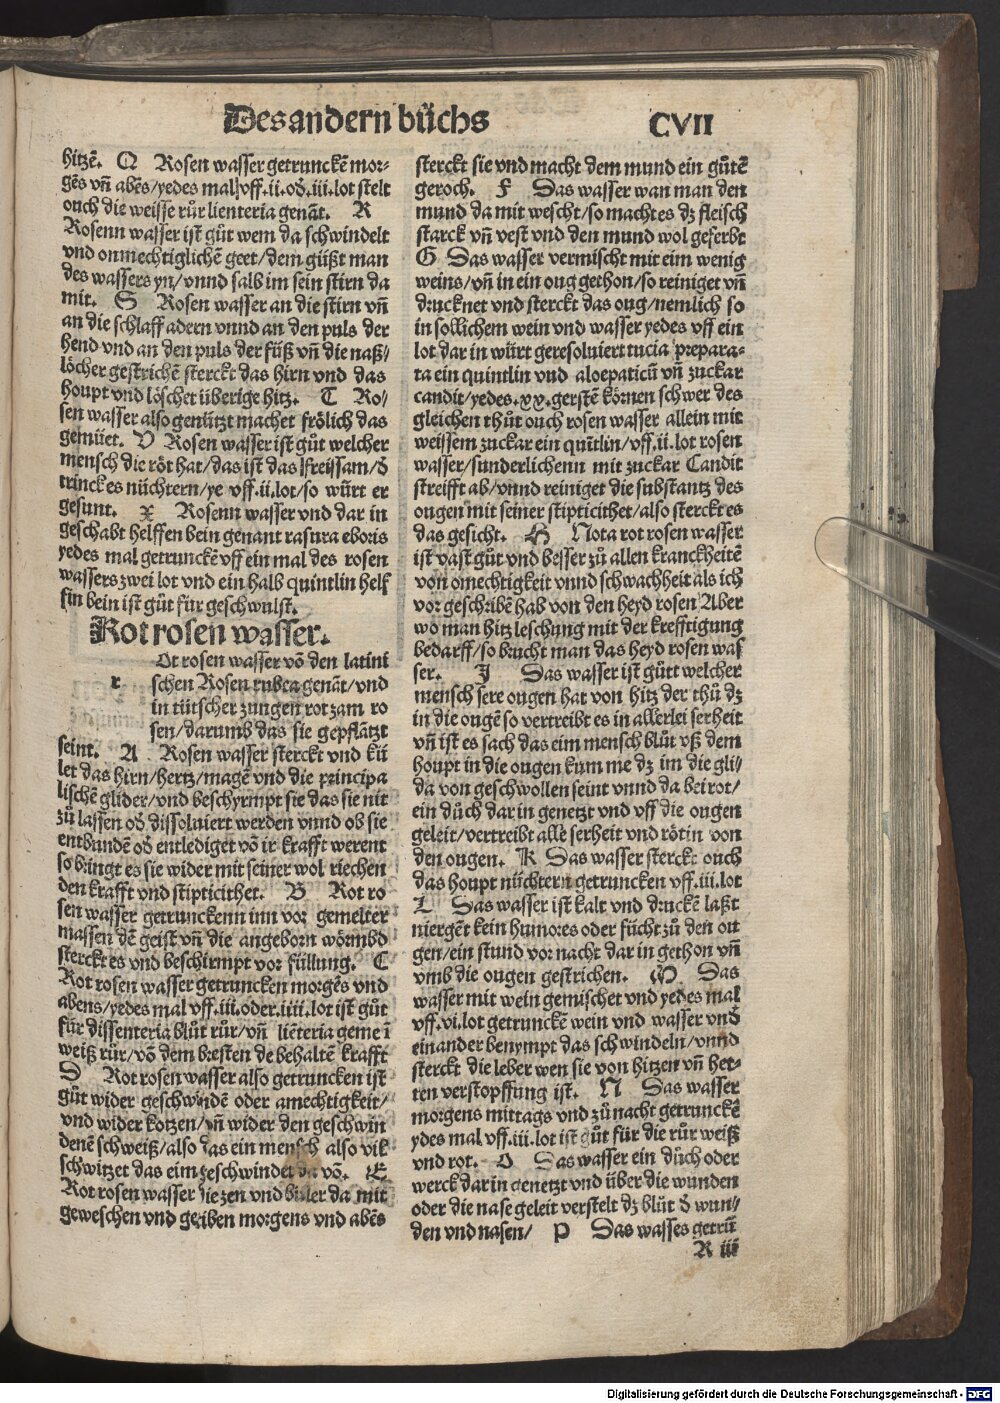 Des andern büchs CVII
hitzē. Q Rosen wasser getrunckē mor⸗
gēs vñ abēs/yedes mal vff.ii.od̄.iii.lot stelt
ouch die weisse růr lienteria genāt. R
Rosenn wasser ist gůt wem da schwindelt
vnd onmechtiglichē geet/dem güßt man
des wassers yn/vnnd salb im sein stirn da
mit. S Rosen wasser an die stirn vñ
an die schlaff adern vnnd an den puls der
hend vnd an den puls der füß vñ die naß/
löcher gestrichē sterckt das hirn vnd das
houpt vnd löschet überige hitz. T Ro/
sen wasser also genützt machet frölich das
gemüet. V Rosen wasser ist gůt welcher
mensch die röt hat/das ist das freissam/d̄
trinck es nüchtern/ye vff.ii.lot/so würt er
gesunt. x Rosenn wasser vnd dar in
geschabt helffen bein genant rasura eboris
yedes mal getrunckē vff ein mal des rosen
wassers zwei lot vnd ein halb quintlin helf
fin bein ist gůt für geschwulst.
Rot rosen wasser.
Ot rosen wasser vō den latini
r schen Rosen rubea genāt/vnd
in tütscher zungen rot zam ro
sen/darumb das sie gepflātzt
seint. A Rosen wasser sterckt vnd kü
let das hirn/hertz/magē vnd die principa
lischē glider/vnd beschyrmpt sie das sie nit
zů lassen od̄ dissoluiert werden vnnd ob sie
entbundē od̄ entlediget vō ir krafft werent
so bringt es sie wider mit seiner wol riechen
den krafft vnd stipticithet. B Rot ro
sen wasser getrunckenn inn vor gemelter
massen dē geist vñ die angeborn wörmbd
sterckt es vnd beschirmpt vor füllung. C
Rot rosen wasser getruncken morgēs vnd
abens/yedes mal vff.iii.oder.iiii.lot ist gůt
für dissenteria blůt růr/vñ liēteria geme ī
weiß růr/vō dem bresten de behaltē krafft
D Rot rosen wasser also getruncken ist
gůt wider geschwindē oder amechtigkeit/
vnd wider kotzen/vñ wider den geschwin
denē schweiß/also das ein mensch also vil
schwitzet das eim geschwindet da vō. E
Rot rosen wasser die zen vnd biler da mit
geweschen vnd geriben morgens vnd abēs
sterckt sie vnd macht dem mund ein gůtē
geroch. F Das wasser wan man den
mund da mit wescht/so macht es dz fleisch
starck vñ vest vnd den mund wol geferbt
G Das wasser vermischt mit eim wenig
weins/vñ in ein oug gethon/so reiniget vñ
drucknet vnd sterckt das oug/nemlich so
in sollichem wein vnd wasser yedes vff ein
lot dar in würt geresoluiert tucia prepara⸗
ta ein quintlin vnd aloepaticū vñ zuckar
candit/yedes.xx.gerstē körnen schwer des
gleichen thůt ouch rosen wasser allein mit
weissem zuckar ein quītlin/vff.ii.lot rosen
wasser/sunderlichenn mit zuckar Candit
streifft ab/vnnd reiniget die substantz des
ougen mit seiner stipticithet/also sterckt es
das gesicht. H Nota rot rosen wasser
ist vast gůt vnd besser zů allen kranckheitē
von omechtigkeit vnnd schwachheit als ich
vor geschribē hab von den heyd rosen Aber
wo man hitz leschung mit der krefftigung
bedarff/so brucht man das heyd rosen was
ser. J Das wasser ist gůtt welcher
mensch sere ougen hat von hitz der thů dz
in die ougē so vertreibt es in allerlei serheit
vñ ist es sach das eim mensch blůt vß dem
houpt in die ougen kum me dz im die gli/
da von geschwollen seint vnnd da bei rot/
ein důch dar in genetzt vnd vff die ougen
geleit/vertreibt alle serheit vnd rötin von
den ougen. K Das wasser sterckt ouch
das houpt nüchtern getruncken vff.iii.lot
L Das wasser ist kalt vnd druckē laßt
niergēt kein humores oder fücht zů den ou
gen/ein stund vor nacht dar in gethon vñ
vmb die ougen gestrichen. M Das
wasser mit wein gemischet vnd yedes mal
vff.vi.lot getrunckē wein vnd wasser vnd̄
einander benympt das schwindeln/vnnd
sterckt die leber wen sie von hitzen vñ her⸗
ten verstopffung ist. N Das wasser
morgens mittags vnd zů nacht getrunckē
ydes mal vff.iii.lot ist gůt für die růr weiß
vnd rot. O Das wasser ein důch oder
werck dar in genetzt vnd über die wunden
oder die nase geleit verstelt dz blůt d̄ wun/
den vnd nasen/ P Das wasses getrū
R iii
Digitalisierung gefördert durch die Deutsche Forschungsgemeinschaft - DFG